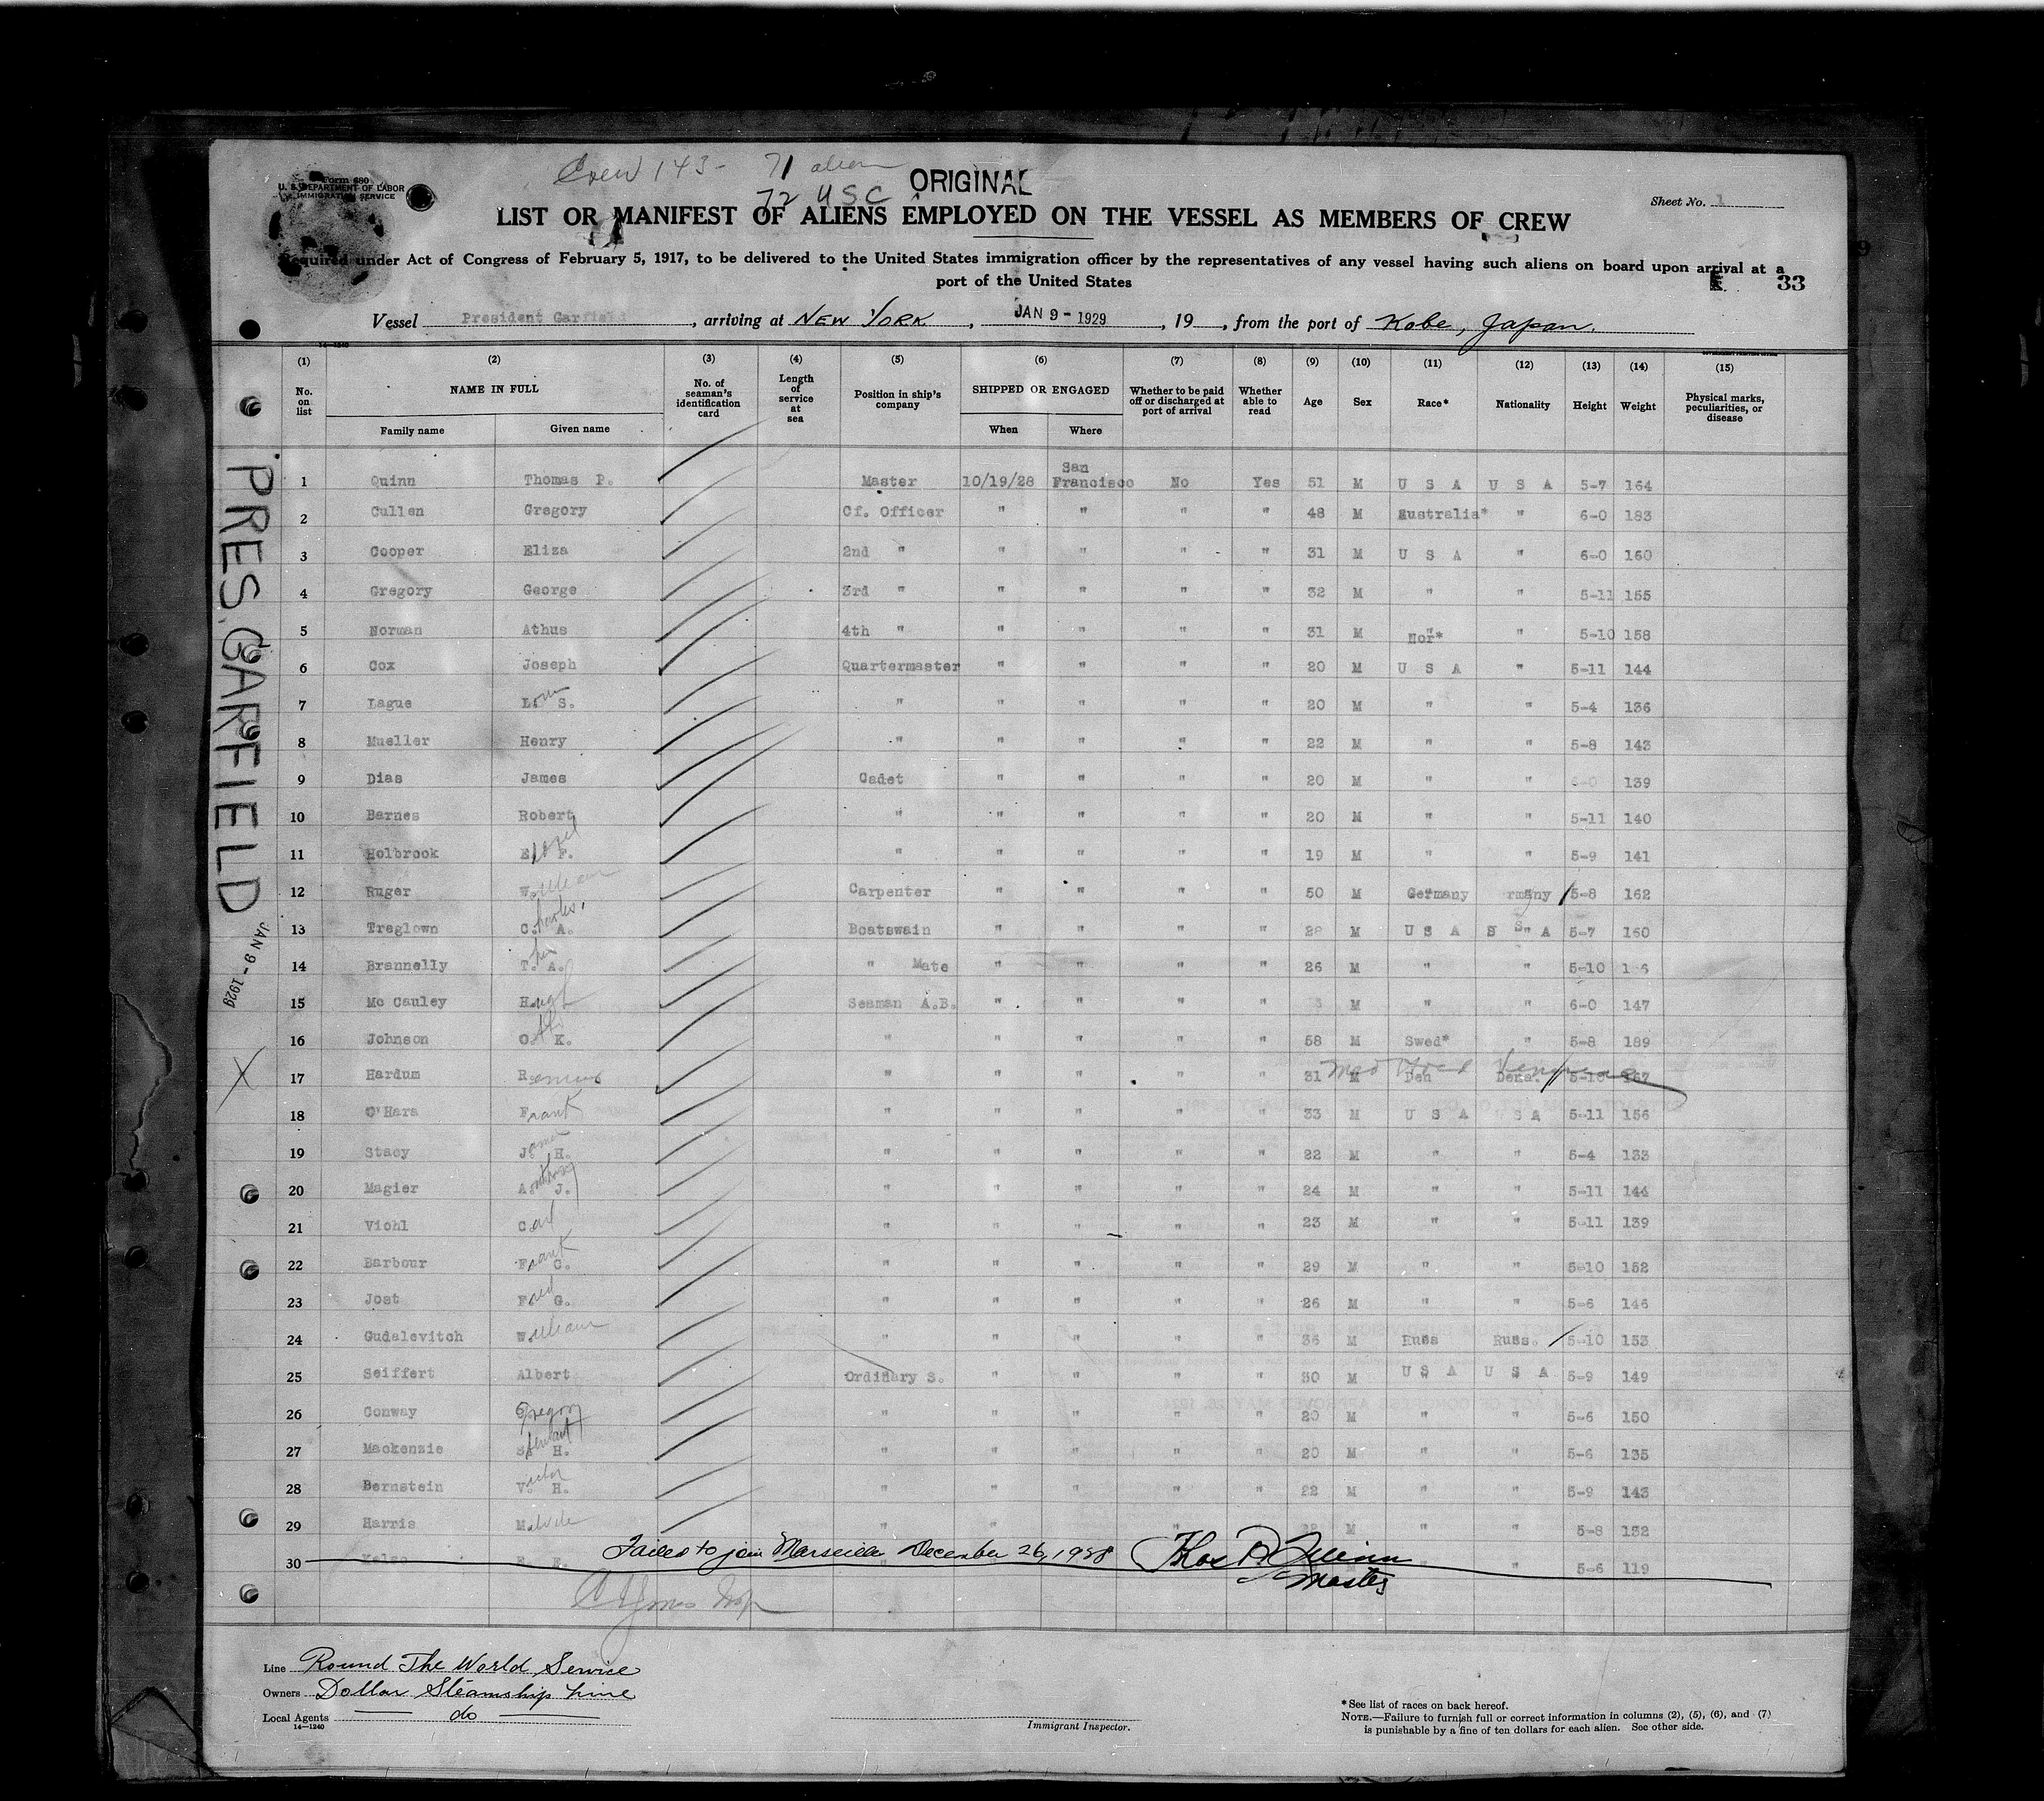 Crew 143- 71 alien
72 USC
ORIGINAL
Form 680
U. S. DEPARTMENT OF LABOR
IMMIGRATION SERVICE
Sheet No. 1
LIST OR MANIFEST OF ALIENS EMPLOYED ON THE VESSEL AS MEMBERS OF CREW
Required under Act of Congress of February 5, 1917, to be delivered to the United States immigration officer by the representatives of any vessel having such aliens on board upon arrival at a
port of the United States
33
Vessel President Garfield, arriving at NEW YORK, JAN 9-1929, 19, from the port of Kobe, Japan.
14-1240
(1) (2) (3) (4) (5) (6) (7) (8) (9) (10) (11) (12) (13) (14) (15)
No. on list NAME IN FULL Family name Given name No. of seaman's identification card Length of service at sea Position in ship's company SHIPPED OR ENGAGED When Where Whether to be paid off or discharged at port of arrival Whether able to read Age Sex Race* Nationality Height Weight Physical marks, peculiarities, or disease
1 Quinn Thomas P. Master 10/19/28 San Francisco No Yes 51 M U S A U S A 5-7 164
2 Cullen Gregory Cf. Officer " " " " 48 M Australia* " 6-0 183
3 Cooper Eliza 2nd " " " " " 31 M U S A " 6-0 160
4 Gregory George 3rd " " " " " 32 M " " 5-11 155
5 Norman Athus 4th " " " " " 31 M " Nor* " 5-10 158
6 Cox Joseph Quartermaster " " " " 20 M U S A " 5-11 144
7 Lague L. S. " " " " " 20 M " " 5-4 136
8 Mueller Henry " " " " " 22 M " " 5-8 143
9 Dias James Cadet " " " " 20 M " " 6-0 139
10 Barnes Robert " " " " " 20 M " " 5-11 140
11 Holbrook E. F. " " " " " 19 M " " 5-9 141
12 Ruger William Carpenter " " " " 50 M Germany rmany 5-8 162
13 Treglown Charles A. Boatswain " " " " 28 M U S A S S A 5-7 160
14 Brannelly T. A. " Mate " " " " 26 M " " 5-10
15 Mc Cauley Hugh Seaman A.B. " " " " M " " 6-0 147
16 Johnson O. K. " " " " " 58 M Swed* " 5-8 189
17 Hardum Rasmus " " " " " 31 M Den Dena. 5-10 167
18 O'Hara Frank " " " " " 33 M U S A S A 5-11 156
19 Stacy James H. " " " " " 22 M " " 5-4 133
20 Magier Anthony J. " " " " " 24 M " " 5-11 144
21 Viohl Carl " " " " " 23 M " " 5-11 139
22 Barbour Frank C. " " " " " 29 M " " 5-10 152
23 Jost Fred G. " " " " " 26 M " " 5-6 146
24 Gudalevitch William " " " " " 36 M Russ Russ. 5-10 153
25 Seiffert Albert Ordinary S. " " " " 30 M U S A U S A 5-9 149
26 Conway Gregory " " " " " 20 M " " 5-6 150
27 Mackenzie Stewart H. " " " " " 20 M " " 5-6 135
28 Bernstein Victor H. " " " " " 22 M " " 5-9 143
29 Harris " " " M " " 5-8 132
30 Failed to join Marseille December 26, 1928 Thos P. Quinn Master " 5-6 119
PRES. GARFIELD
JAN 9-1929
Line Round The World Service
Owners Dollar Steamship Line
Local Agents do
14-1240
Immigrant Inspector.
*See list of races on back hereof.
NOTE.—Failure to furnish full or correct information in columns (2), (5), (6), and (7)
is punishable by a fine of ten dollars for each alien. See other side.